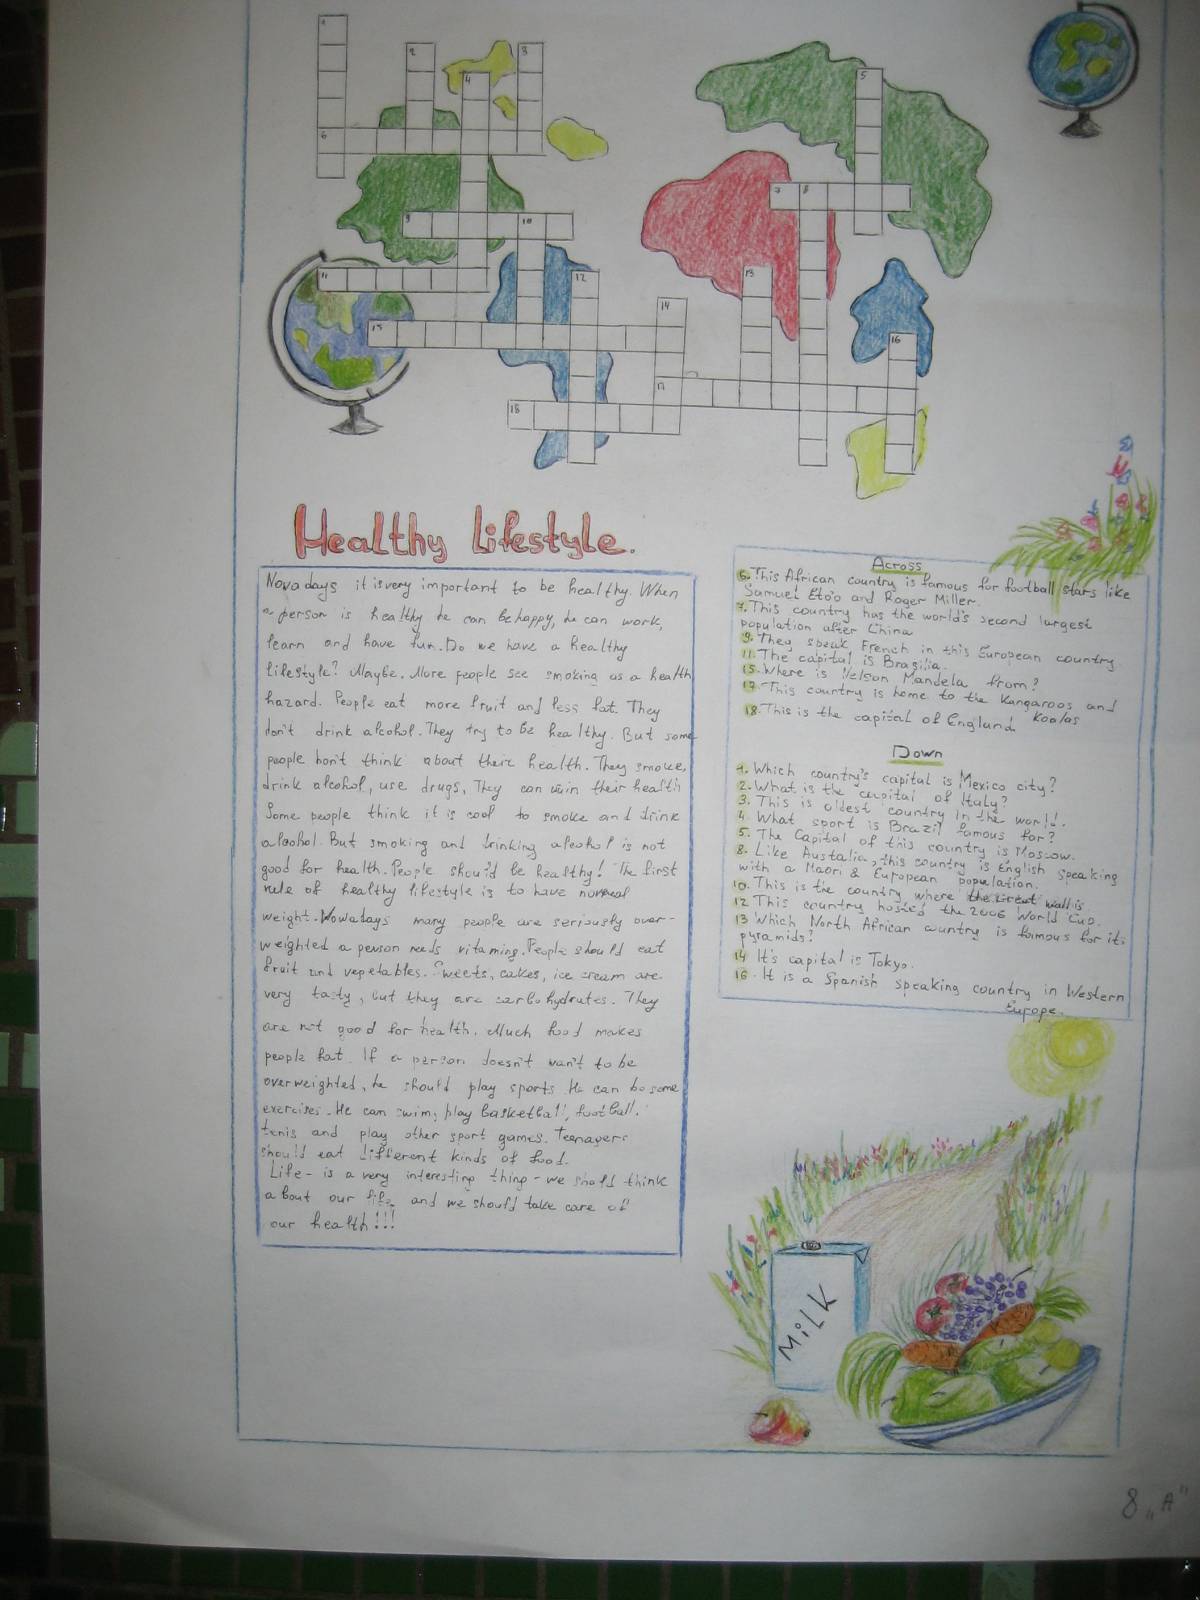 1
2
3
4
5
6
7
8
9
10
11
12
13
14
15
16
17
18
Healthy Lifestyle.
Novadays it is very important to be healthy. When
a person is healthy he can be happy, he can work,
learn and have fun. Do we have a healthy
lifestyle? Maybe. More people see smoking as a health
hazard. People eat more fruit and less fat. They
don't drink alcohol. They try to be healthy. But some
people don't think about their health. They smoke,
drink alcohol, use drugs, They can ruin their health
Some people think it is cool to smoke and drink
alcohol. But smoking and drinking alcohol is not
good for health. People should be healthy! The first
rule of healthy lifestyle is to have normal
weight. Nowadays many people are seriously over-
weighted a person needs vitaming. People should eat
fruit and vegetables. Sweets, cakes, ice cream are
very tasty, but they are carbohydrates. They
are not good for health. Much food makes
people fat. If a person doesn't want to be
overweighted, he should play sports. He can do some
exercises. He can swim, play basketball, football.
tenis and play other sport games. Teenagers
should eat different kinds of food.
Life - is a very interesting thing - we should think
about our life and we should take care of
our health!!!
Across
6. This African country is famous for football stars like
Samuel Eto'o and Roger Miller.
7. This country has the world's second largest
population after China
9. They speak French in this European country.
11. The capital is Brasilia.
15. Where is Nelson Mandela from?
17. This country is home to the Kangaroos and
Koalas
18. This is the capital of England
Down
1. Which country's capital is Mexico city?
2. What is the capital of Italy?
3. This is oldest country in the world.
4. What sport is Brazil famous for?
5. The Capital of this country is Moscow.
8. Like Austalia, this country is English speaking
with a Maori & European population.
10. This is the country where the Great wall is
12 This country hosted the 2006 World Cup.
13 Which North African country is famous for its
pyramids?
14 It's capital is Tokyo.
16. It is a Spanish speaking country in Western
Europe.
MiLK
8 „A"